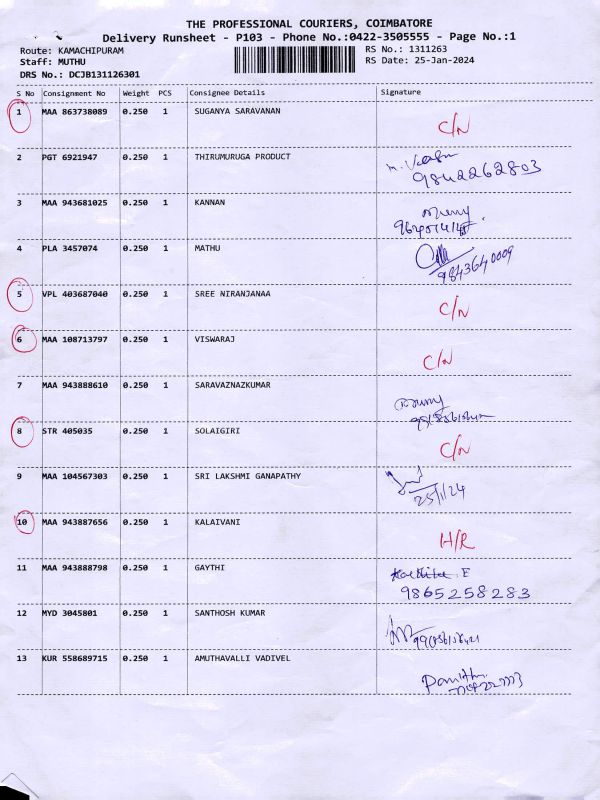 THE PROFESSIONAL COURIERS, COIMBATORE
Delivery Runsheet - P103 - Phone No.:0422-3505555 - Page No.:1
Route: KAMACHIPURAM RS No.: 1311263
Staff: MUTHU RS Date: 25-Jan-2024
DRS No.: DCJB131126301
S No Consignment No Weight PCS Consignee Details Signature
1 MAA 863738089 0.250 1 SUGANYA SARAVANAN C/N
2 PGT 6921947 0.250 1 THIRUMURUGA PRODUCT
9842262803
3 MAA 943681025 0.250 1 KANNAN
4 PLA 3457074 0.250 1 MATHU
9843640009
5 VPL 403687040 0.250 1 SREE NIRANJANAA C/N
6 MAA 108713797 0.250 1 VISWARAJ C/N
7 MAA 943888610 0.250 1 SARAVAZNAZKUMAR
8 STR 405035 0.250 1 SOLAIGIRI C/N
9 MAA 104567303 0.250 1 SRI LAKSHMI GANAPATHY
25/1/24
10 MAA 943887656 0.250 1 KALAIVANI H/R
11 MAA 943888798 0.250 1 GAYTHI E
9865258283
12 MYD 3045801 0.250 1 SANTHOSH KUMAR
13 KUR 558689715 0.250 1 AMUTHAVALLI VADIVEL